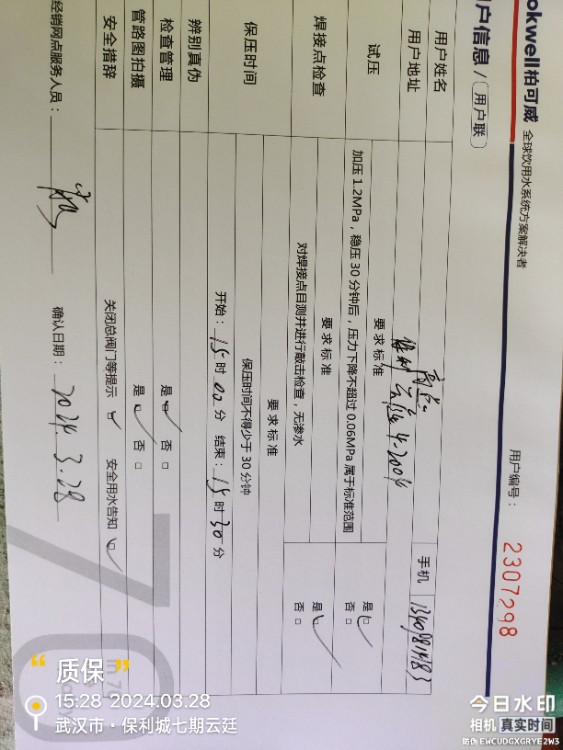 okwell柏可威 全球饮用水系统方案解决者
户信息 / 用户联
用户编号： 2307298
用户姓名
手机
用户地址 保利云庭4-2004
试压 要求标准
加压 1.2MPa，稳压 30 分钟后，压力下降不超过 0.06MPa 属于标准范围 是 否
焊接点检查 要求标准
对焊接点目测并进行敲击检查，无渗水 是 否
保压时间 要求标准
保压时间不得少于 30 分钟
开始：15 时 00 分 结束：15 时 30 分
辨别真伪
检查管理 是 否
管路图拍摄 是 否
安全措辞 关闭总阀门等提示 安全用水告知
经销网点服务人员：
确认日期： 2024.3.28
“质保”
15:28 2024.03.28
武汉市·保利城七期云廷
今日水印
相机 真实时间
防伪 EWCUDGXGRYE2W3